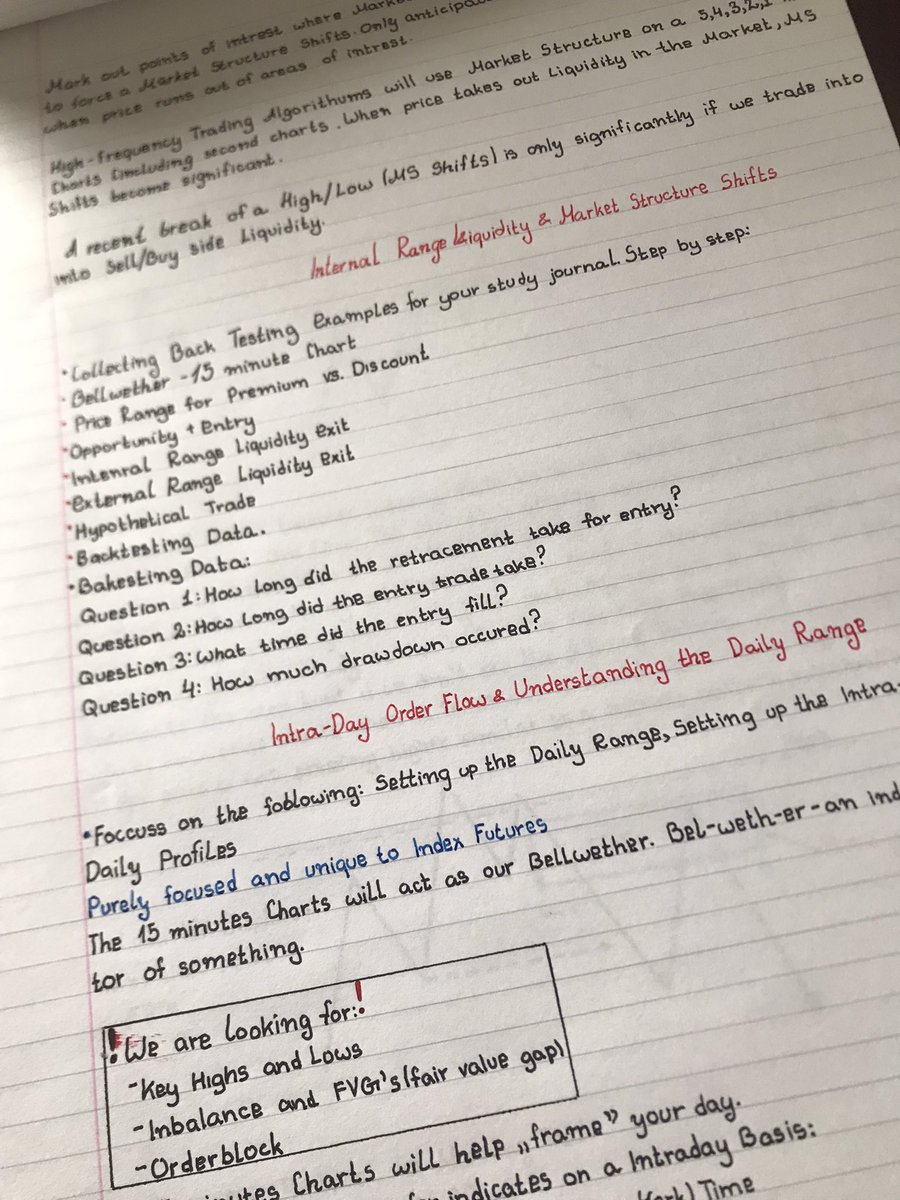 Mark out points of intrest where Marke
to force a Market Structure Shifts. Only anticipa
when price runs out of areas of intrest.
High-Frequency Trading Algorithums will use Market Structure on a 5,4,3,2,1
Charts (including second charts. When price takes out Liquidity in the Market, MS
Shifts become significant.
A recent break of a High/Low (MS Shifts) is only significantly if we trade into
into Sell/Buy side Liquidity.
Internal Range Liquidity & Market Structure Shifts
•Collecting Back Testing Examples for your study journal. Step by step:
•Bellwether -15 minute Chart
•Price Range for Premium vs. Discount
•Opportunity + Entry
•Intenral Range Liquidity exit
•External Range Liquidity exit
•Hypothetical Trade
•Backtesting Data.
•Bakesting Data:
Question 1: How long did the retracement take for entry?
Question 2: How long did the entry trade take?
Question 3: What time did the entry fill?
Question 4: How much drawdown occured?
Intra-Day Order Flow & Understanding the Daily Range
•Foccuss on the foblowing: Setting up the Daily Range, Setting up the Intra-
Daily Profiles
Purely focused and unique to Index Futures
The 15 minutes Charts will act as our Bellwether. Bel-weth-er-an ind
tor of something.
! We are looking for:!
-Key Highs and Lows
-Inbalance and FVG's (fair value gap)
-Orderblock
Charts will help „frame” your day.
indicates on a Intraday Basis:
Time